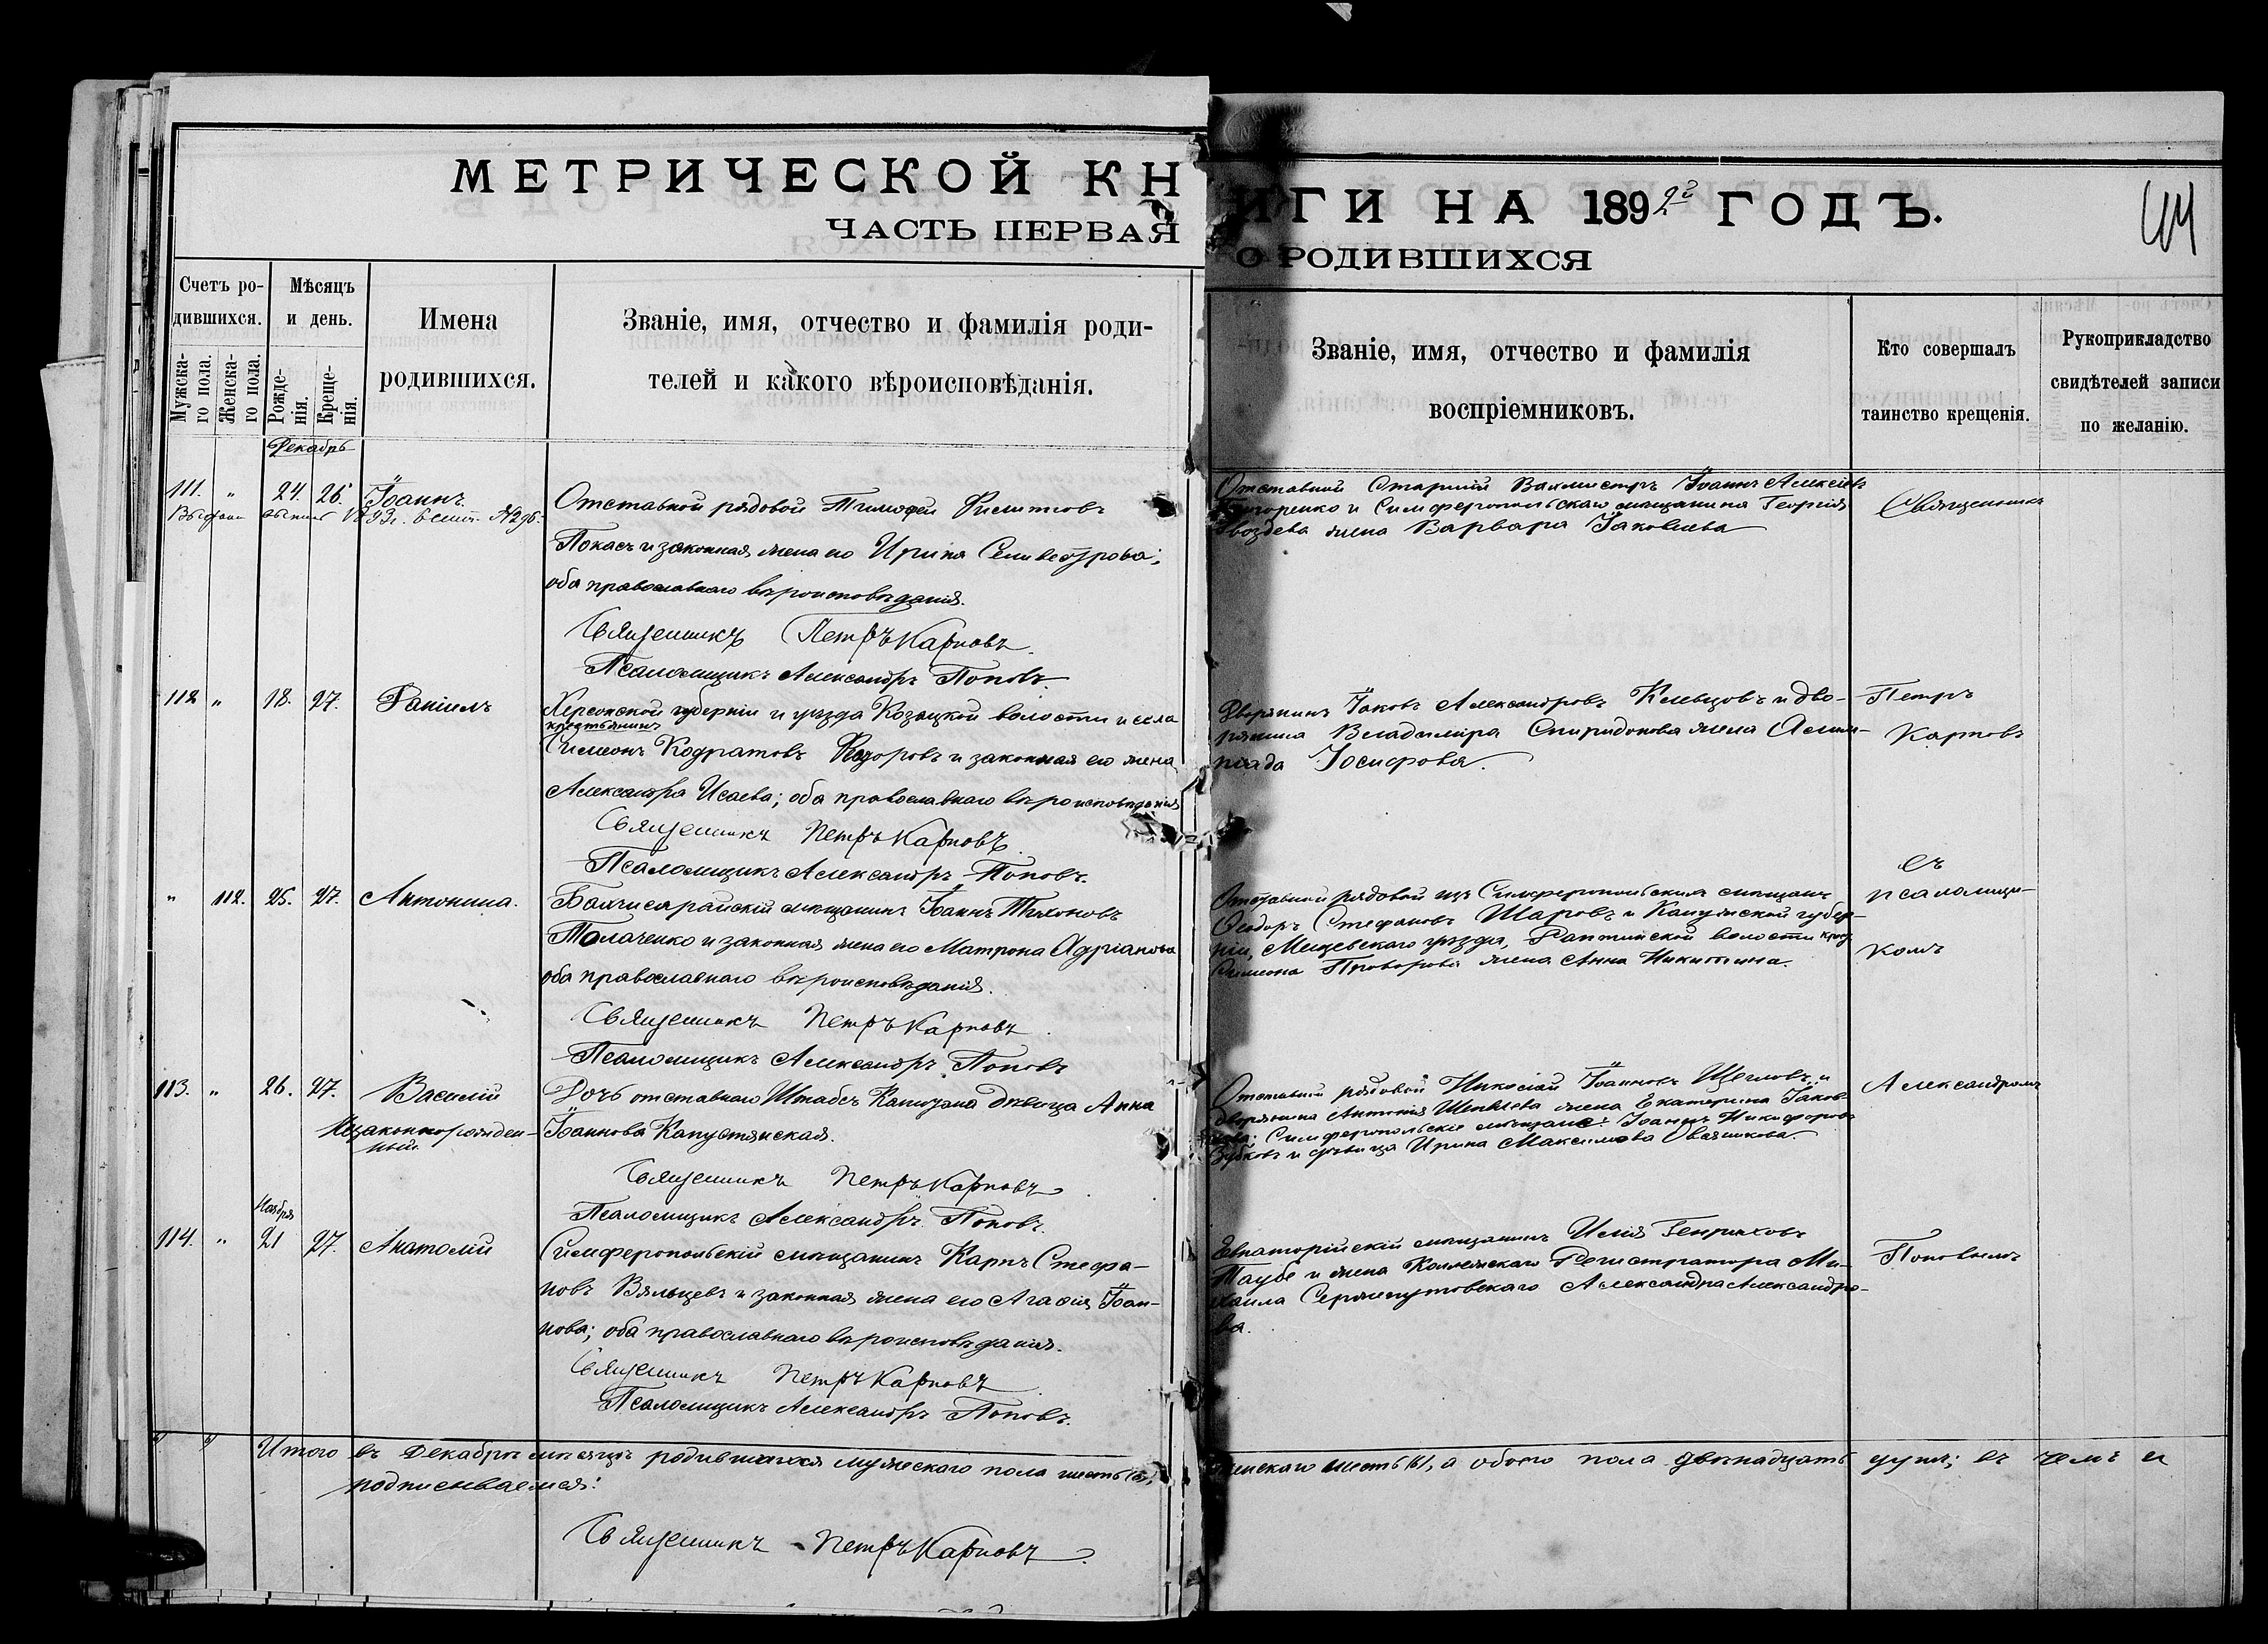 МЕТРИЧЕСКОЙ КНИГИ НА 1892й ГОДЪ.
44
ЧАСТЬ ПЕРВАЯ О РОДИВШИХСЯ
Счетъ родившихся.
Мужскаго пола.
Женскаго пола.
Мѣсяцъ и день.
Рожденія.
Крещенія.
Имена
родившихся.
Званіе, имя, отчество и фамилія роди-
телей и какого вѣроисповѣданія.
Званіе, имя, отчество и фамилія
воспріемниковъ.
Кто совершалъ
таинство крещенія.
Рукоприкладство
свидѣтелей записи
по желанію.
Декабрь
111. " 24. 26. Іоаннъ
Отставной рядовой Тимофей Филиповъ
Покасъ и законная жена его Ирина Селивестрова;
оба православнаго вѣроисповѣданія.
Священникъ Петръ Карповъ.
Псаломщикъ Александръ Поповъ.
Отставной Старшій Вахмистръ Іоаннъ Алексѣевъ
и Симферопольскаго мѣщанина Георгія
Гвоздева жена Варвара Іаковлева
Священникъ
112 " 18. 27. Даніилъ
Херсонской губерніи и уѣзда Козацкой волости и села
крестьянинъ
Симеонъ Кодратовъ Ѳедоровъ и законная его жена
Александра Исаева; оба православнаго вѣроисповѣданія
Священникъ Петръ Карповъ.
Псаломщикъ Александръ Поповъ.
Дворянинъ Іаковъ Александровъ Клевцовъ и дво-
рянина Владиміра Спиридонова жена Олим-
піада Іосифова.
Петръ
Карповъ
" 112. 25. 27. Антонина.
Бахчисарайскій мѣщанинъ Іоаннъ Тихоновъ
Толаченко и законная жена его Матрона Адріанова
оба православнаго вѣроисповѣданія.
Священникъ Петръ Карповъ.
Псаломщикъ Александръ Поповъ
Отставной рядовой изъ Симферопольскихъ мѣщанъ
Ѳеодоръ Стефановъ Шаровъ и Калужской губер-
ніи, Мещевскаго уѣзда, волости крест.
Симеона Проворова жена Анна Никитина.
съ
псаломщи-
комъ
113. " 26. 27. Василій
Незаконнорожден-
ный.
Дочь отставнаго Штабсъ Капитана дѣвица Анна
Іоаннова Капустянская.
Священникъ Петръ Карповъ.
Псаломщикъ Александръ Поповъ.
Отставной рядовой Николай Іоанновъ Щегловъ и
дворянина Антонія жена Екатерина Іаков-
лева; Симферопольскіе мѣщане: Іоаннъ Никифоровъ
Зубковъ и дѣвица Ирина Максимова Овчинникова.
Александромъ
Ноября
114. " 21 27. Анатолій
Симферопольскій мѣщанинъ Карпъ Стефа-
новъ Вяльцевъ и законная жена его Агаѳія Іоан-
нова; оба православнаго вѣроисповѣданія.
Священникъ Петръ Карповъ.
Псаломщикъ Александръ Поповъ.
Евпаторійскій мѣщанинъ Илія Генриховъ
Таубе и жена Коллежскаго Регистратора Ми-
хаила Сержпутовскаго Александра Александро-
ва.
Поповымъ
Итого въ Декабрѣ мѣсяцѣ родившихся мужескаго пола шесть (6), женскаго шесть (6), а обоего пола двѣнадцать душъ; въ чемъ и
подписываемся:
Священникъ Петръ Карповъ.